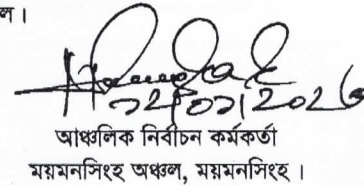 ল।
আঞ্চলিক নির্বাচন কর্মকর্তা
ময়মনসিংহ অঞ্চল, ময়মনসিংহ।